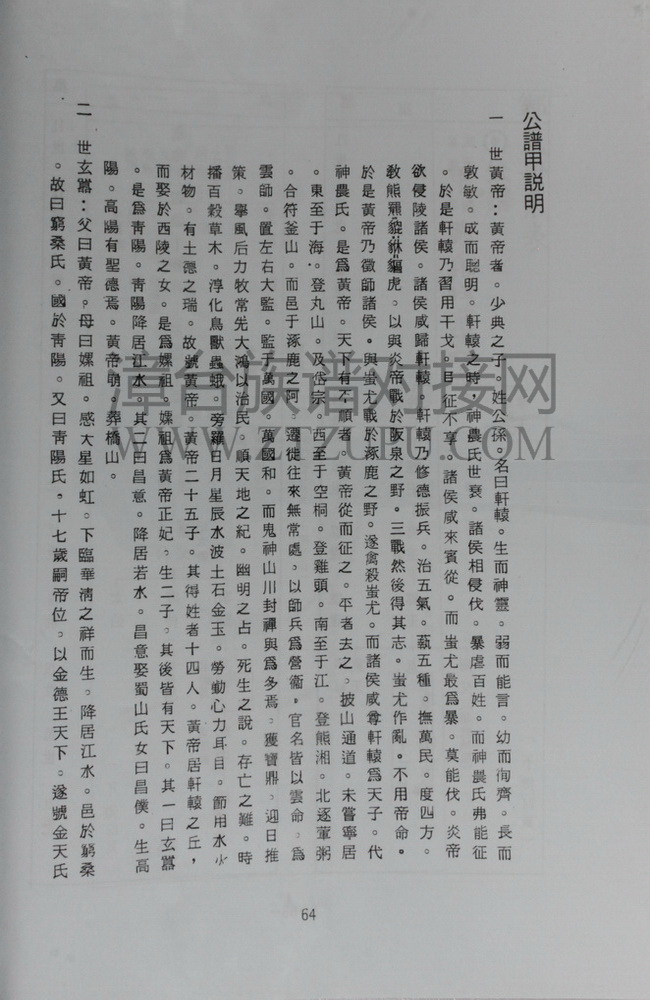 公譜甲説明
一　世黃帝：黃帝者。少典之子。姓公孫。名曰軒轅。生而神靈。弱而能言。幼而徇齊。長而
敦敏。成而聰明。軒轅之時。神農氏世衰。諸侯相侵伐。暴虐百姓。而神農氏弗能征
。於是軒轅乃習用干戈。以征不享。諸侯咸來賓從。而蚩尤最爲暴。莫能伐。炎帝
欲侵陵諸侯。諸侯咸歸軒轅。軒轅乃修德振兵。治五氣。蓺五種。撫萬民。度四方。
教熊羆貔貅貙虎。以與炎帝戰於阪泉之野。三戰然後得其志。蚩尤作亂。不用帝命。
於是黃帝乃徵師諸侯。與蚩尤戰於涿鹿之野。遂禽殺蚩尤。而諸侯咸尊軒轅爲天子。代
神農氏。是爲黃帝。天下有不順者。黃帝從而征之。平者去之。披山通道。未嘗寧居
。東至于海。登丸山。及岱宗。西至于空桐。登雞頭。南至于江。登熊湘。北逐葷粥
。合符釜山。而邑于涿鹿之阿。遷徙往來無常處。以師兵爲營衞。官名皆以雲命。爲
雲師。置左右大監。監于萬國。萬國和。而鬼神山川封禪與爲多焉。獲寶鼎。迎日推
策。擧風后力牧常先大鴻以治民。順天地之紀。幽明之占。死生之説。存亡之難。時
播百穀草木。淳化鳥獸蟲蛾。旁羅日月星辰水波土石金玉。勞動心力耳目。節用水火
材物。有土德之瑞。故號黃帝。黃帝二十五子。其得姓者十四人。黃帝居軒轅之丘，
而娶於西陵之女。是爲嫘祖。嫘祖爲黃帝正妃。生二子。其後皆有天下。其一曰玄囂
。是爲靑陽。靑陽降居江水。其二曰昌意。降居若水。昌意娶蜀山氏女曰昌僕。生高
陽。高陽有聖德焉。黃帝崩。葬橋山。
二　世玄囂：父曰黃帝。母曰嫘祖。感大星如虹。下臨華淸之祥而生。降居江水。邑於窮桑
。故曰窮桑氏。國於靑陽。又曰靑陽氏。十七歲嗣帝位。以金德王天下。遂號金天氏
64
漳台族谱对接网
WWW.ZTZUPU.COM